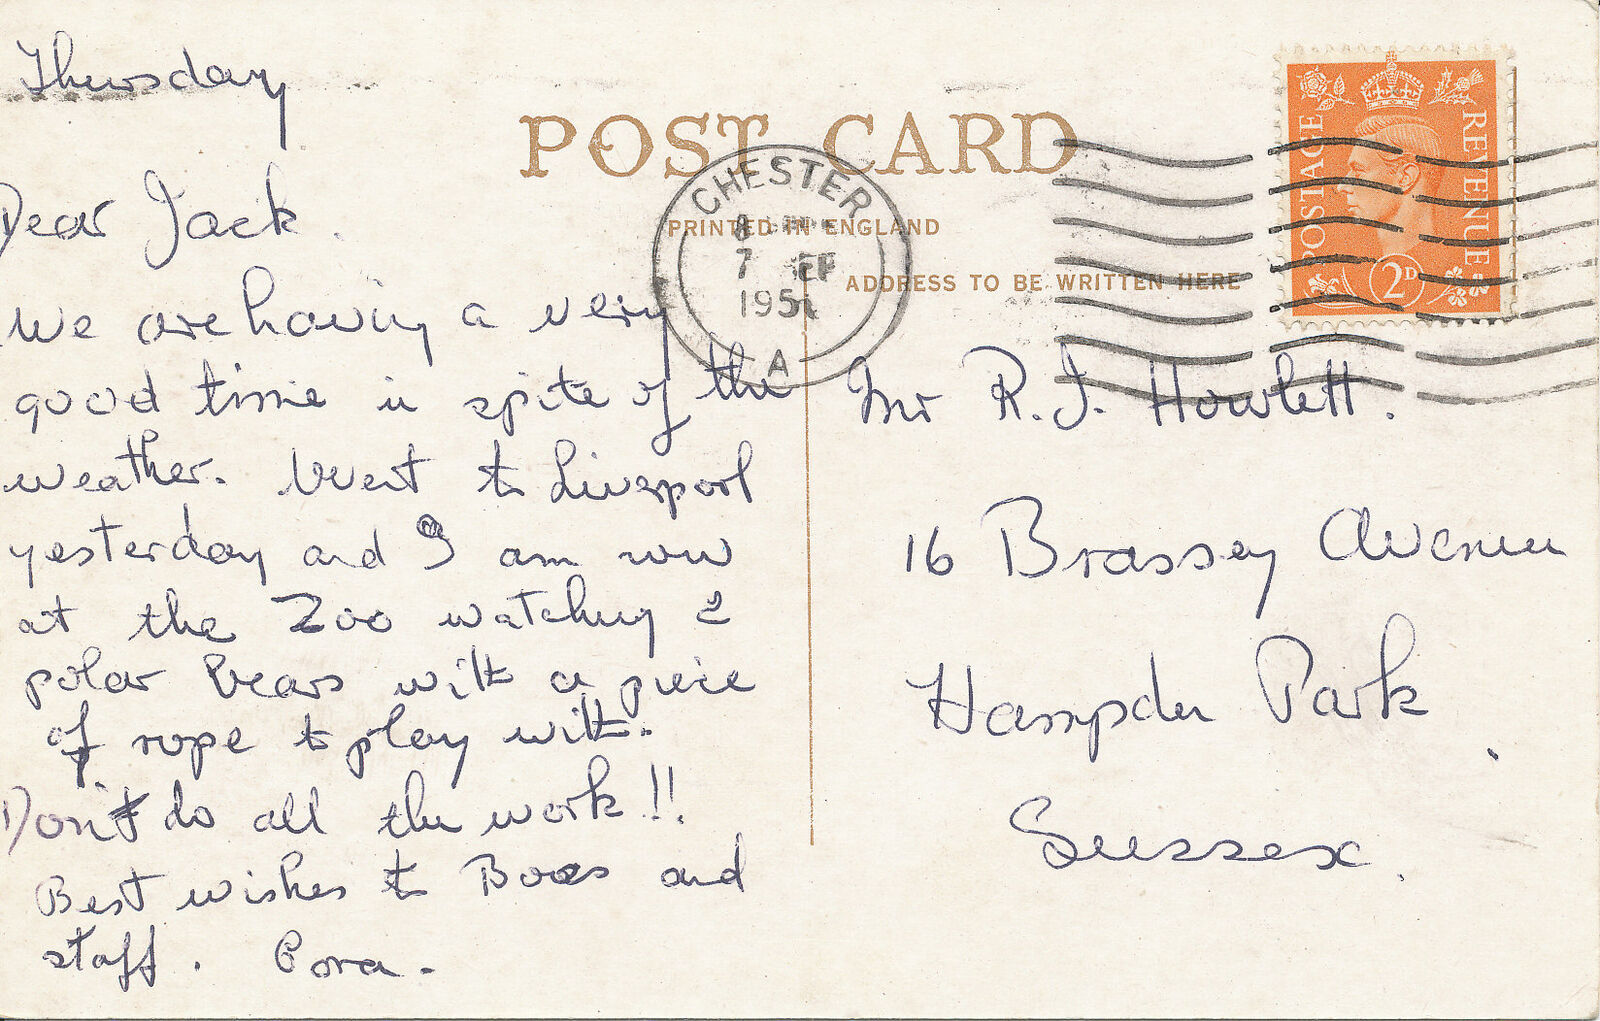 Thursday
Dear Jack.
We are having a very
good time in spite of the
weather. Went to Liverpool
yesterday and I am now
at the Zoo watching 2
polar bears with a piece
of rope to play with.
Don't do all the work!!
Best wishes to and
staff.
POST CARD
PRINTED IN ENGLAND
ADDRESS TO BE WRITTEN HERE
CHESTER
7
1951
A
POSTAGE
REVENUE
2D
Mr R.J. Howlett.
16 Brassey Avenue
Hampden Park
Sussex.